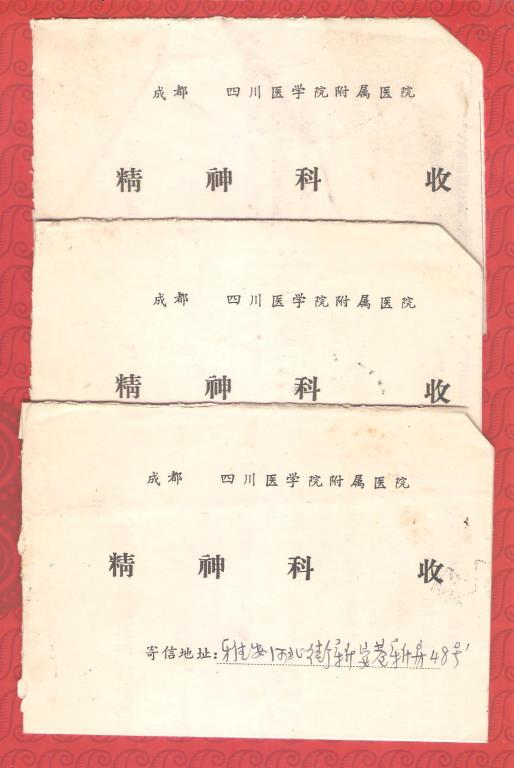 成都 四川医学院附属医院
精神科 收
成都 四川医学院附属医院
精神科 收
成都 四川医学院附属医院
精神科 收
寄信地址：雅安河北街新安巷新房48号